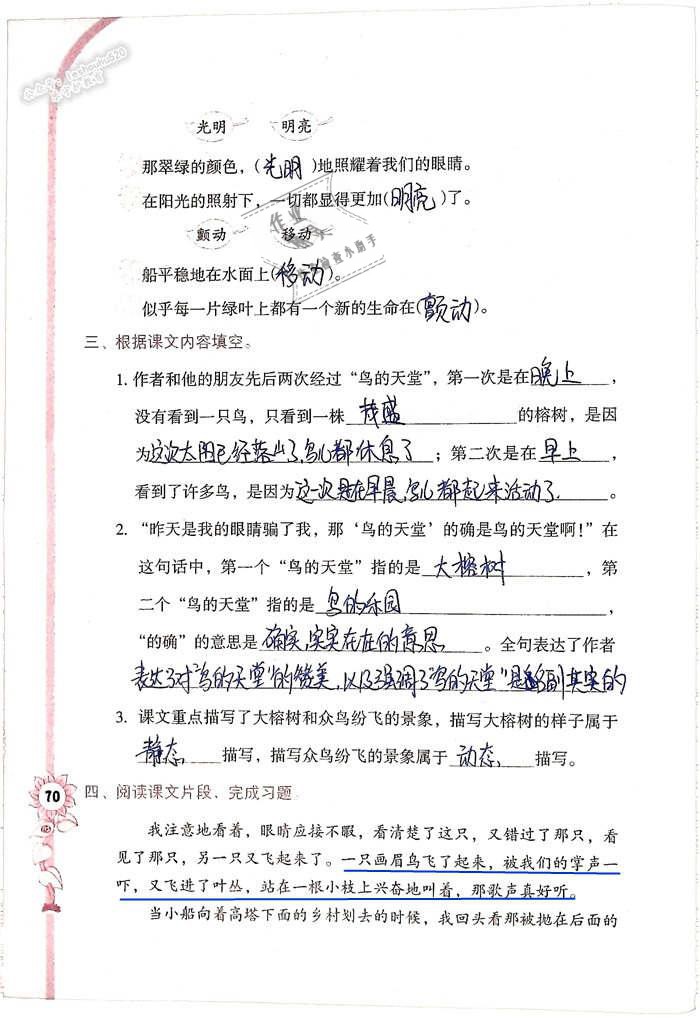 公众号：jieshouku520
光明 明亮
那翠绿的颜色，(光明)地照耀着我们的眼睛。
在阳光的照射下，一切都显得更加(明亮)了。
颤动 移动
船平稳地在水面上(移动)。
似乎每一片绿叶上都有一个新的生命在(颤动)。
三、根据课文内容填空。
1. 作者和他的朋友先后两次经过“鸟的天堂”，第一次是在晚上，
没有看到一只鸟，只看到一株茂盛的榕树，是因
为这次太阳已经落山了,鸟儿都休息了；第二次是在早上，
看到了许多鸟，是因为这一次是在早晨,鸟儿都起来活动了.。
2. “昨天是我的眼睛骗了我，那‘鸟的天堂’的确是鸟的天堂啊!”在
这句话中，第一个“鸟的天堂”指的是大榕树，第
二个“鸟的天堂”指的是鸟的乐园，
“的确”的意思是确实,实实在在的意思。全句表达了作者
表达了对“鸟的天堂”的赞美,以及强调了“鸟的天堂”是名副其实的
3. 课文重点描写了大榕树和众鸟纷飞的景象，描写大榕树的样子属于
静态描写，描写众鸟纷飞的景象属于动态描写。
70
四、阅读课文片段，完成习题
我注意地看着，眼睛应接不暇，看清楚了这只，又错过了那只，看
见了那只，另一只又飞起来了。一只画眉鸟飞了起来，被我们的掌声一
吓，又飞进了叶丛，站在一根小枝上兴奋地叫着，那歌声真好听。
当小船向着高塔下面的乡村划去的时候，我回头看那被抛在后面的